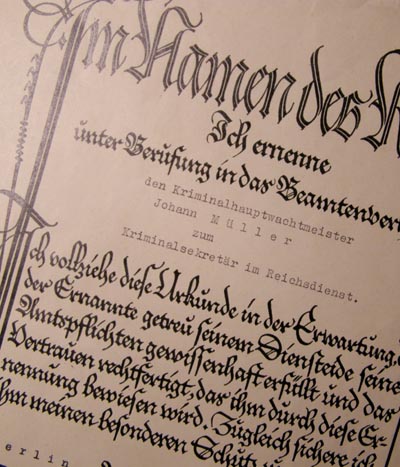 Im Namen des
Ich ernenne
unter Berufung in das Beamtenver
den Kriminalhauptwachtmeister
Johann Müller
zum
Kriminalsekretär im Reichsdienst.
Ich vollziehe diese Urkunde in der Erwartung,
der Ernannte getreu seinem Diensteide seine
Amtspflichten gewissenhaft erfüllt und das
Vertrauen rechtfertigt, das ihm durch diese Er-
nennung bewiesen wird. Zugleich sichere ich
ihm meinen besonderen Schutz
erlin